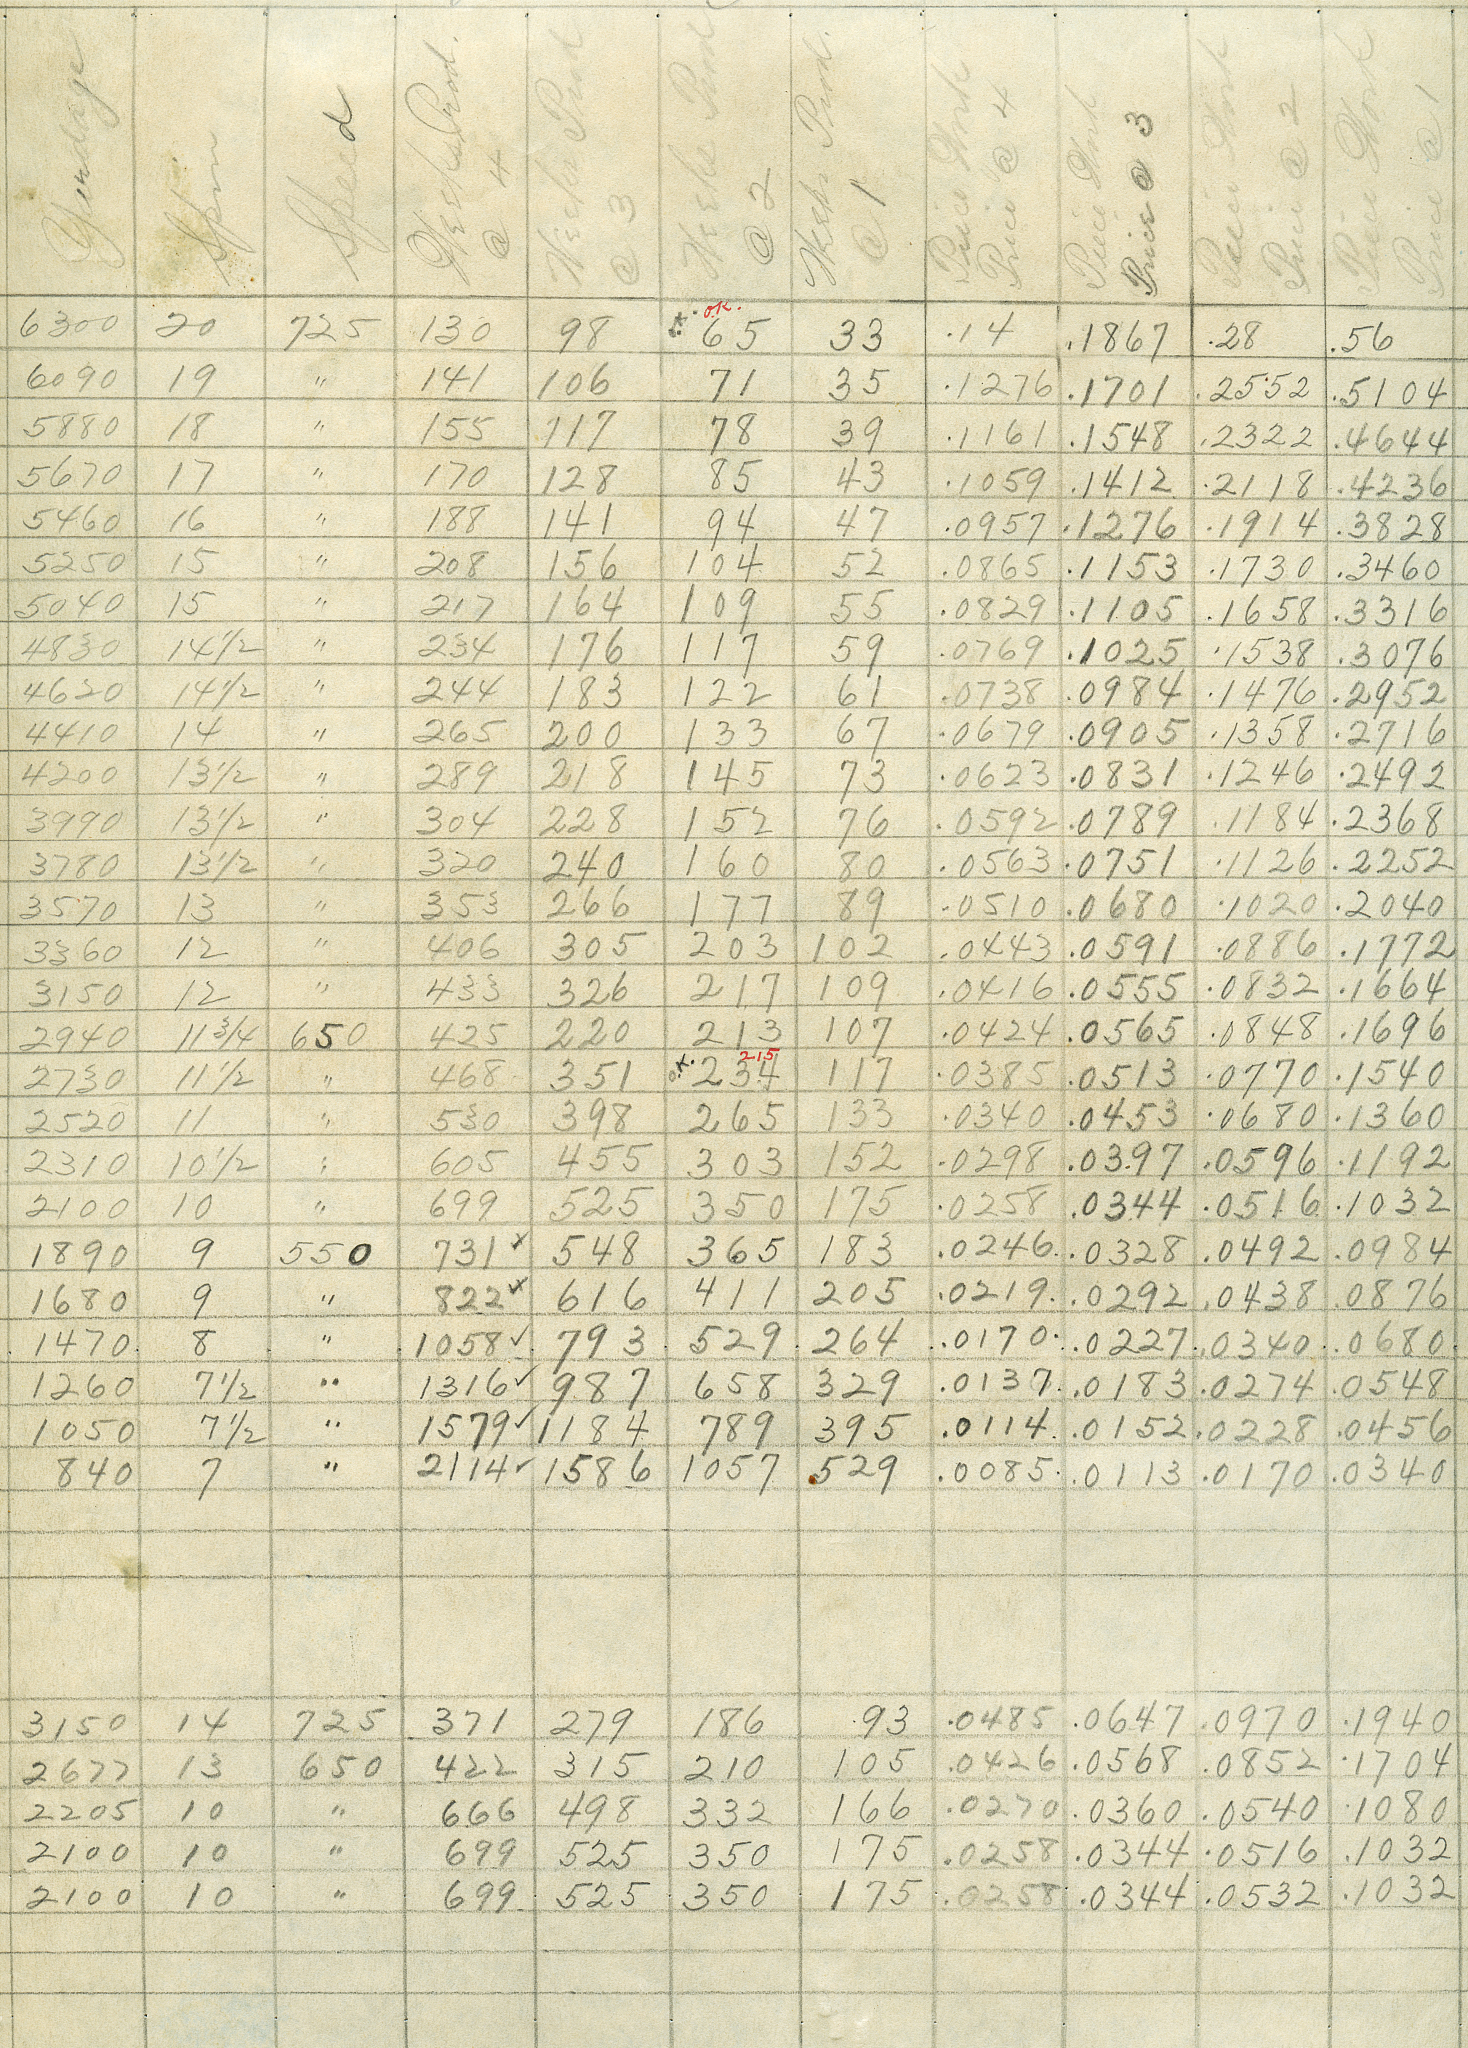 Yardage Spun Speed Weeks Prod. @ 4 Weeks Prod @ 3 Weeks Prod @ 2 Weeks Prod. @ 1 Piece Work Price @ 4 Piece Work Price @ 3 Piece Work Price @ 2 Piece Work Price @ 1
o.k.
6300 20 725 130 98 o.k. 65 33 .14 .1867 .28 .56
6090 19 " 141 106 71 35 .1276 .1701 .2552 .5104
5880 18 " 155 117 78 39 .1161 .1548 .2322 .4644
5670 17 " 170 128 85 43 .1059 .1412 .2118 .4236
5460 16 " 188 141 94 47 .0957 .1276 .1914 .3828
5250 15 " 208 156 104 52 .0865 .1153 .1730 .3460
5040 15 " 217 164 109 55 .0829 .1105 .1658 .3316
4830 14 1/2 " 234 176 117 59 .0769 .1025 .1538 .3076
4620 14 1/2 " 244 183 122 61 .0738 .0984 .1476 .2952
4410 14 " 265 200 133 67 .0679 .0905 .1358 .2716
4200 13 1/2 " 289 218 145 73 .0623 .0831 .1246 .2492
3990 13 1/2 " 304 228 152 76 .0592 .0789 .1184 .2368
3780 13 1/2 " 320 240 160 80 .0563 .0751 .1126 .2252
3570 13 " 353 266 177 89 .0510 .0680 .1020 .2040
3360 12 " 406 305 203 102 .0443 .0591 .0886 .1772
3150 12 " 433 326 217 109 .0416 .0555 .0832 .1664
2940 11 3/4 650 425 220 213 107 .0424 .0565 .0848 .1696
215
2730 11 1/2 " 468 351 o.k. 234 117 .0385 .0513 .0770 .1540
2520 11 " 530 398 265 133 .0340 .0453 .0680 .1360
2310 10 1/2 " 605 455 303 152 .0298 .0397 .0596 .1192
2100 10 " 699 525 350 175 .0258 .0344 .0516 .1032
1890 9 550 731 548 365 183 .0246 .0328 .0492 .0984
1680 9 " 822 616 411 205 .0219 .0292 .0438 .0876
1470 8 " 1058 793 529 264 .0170 .0227 .0340 .0680
1260 7 1/2 " 1316 987 658 329 .0137 .0183 .0274 .0548
1050 7 1/2 " 1579 1184 789 395 .0114 .0152 .0228 .0456
840 7 " 2114 1586 1057 529 .0085 .0113 .0170 .0340
3150 14 725 371 279 186 93 .0485 .0647 .0970 .1940
2677 13 650 422 315 210 105 .0426 .0568 .0852 .1704
2205 10 " 666 498 332 166 .0270 .0360 .0540 .1080
2100 10 " 699 525 350 175 .0258 .0344 .0516 .1032
2100 10 " 699 525 350 175 .0258 .0344 .0532 .1032